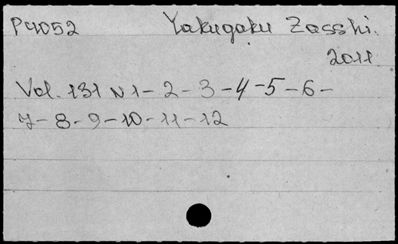 P4052 Yakugaku Zasshi.
2011
Vol. 131 N 1 - 2 - 3 - 4 - 5 - 6 -
7 - 8 - 9 - 10 - 11 - 12